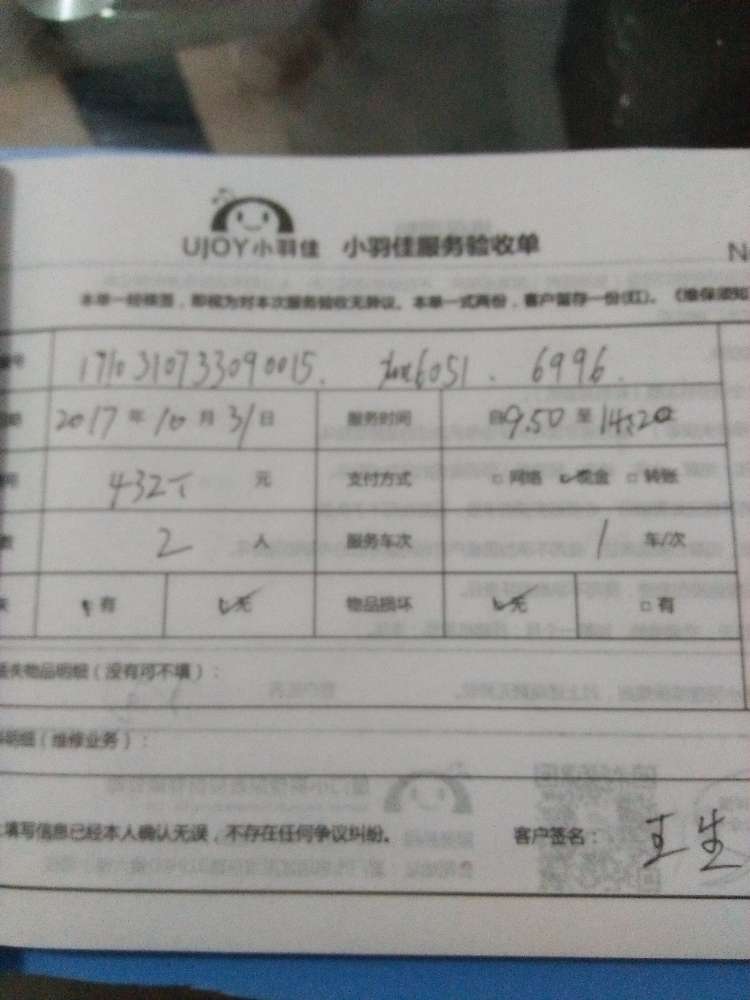 UJOY小羽佳 小羽佳服务验收单
N
本单一经核签，即视为对本次服务验收无异议。本单一式两份，客户留存一份(红)。《维保须知
编号 1710310733090015. 6051. 6996.
日期 2017年10月31日 服务时间 自9.50至14:20
432 元 支付方式 网络 现金 转账
数 2 人 服务车次 1 车/次
失 有 无 物品损坏 无 有
损失物品明细（没有可不填）：
明细（维修业务）：
填写信息已经本人确认无误，不存在任何争议纠纷。 客户签名： 王生